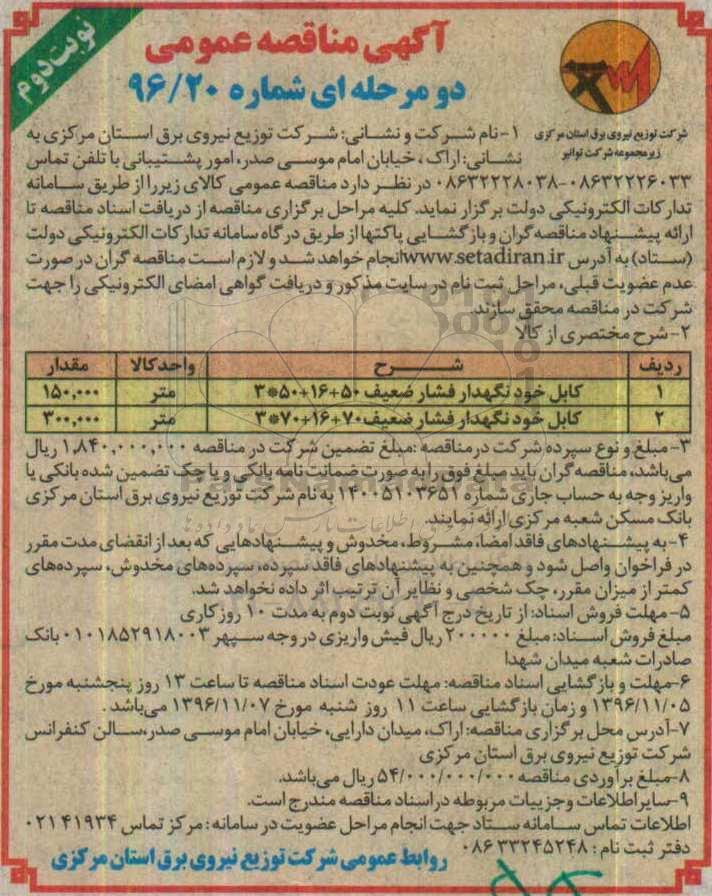 نوبت دوم
آگهی مناقصه عمومی
دو مرحله ای شماره ۹۶/۲۰
شرکت توزیع نیروی برق استان مرکزی
زیرمجموعه شرکت توانیر
۱- نام شرکت و نشانی: شرکت توزیع نیروی برق استان مرکزی به
نشانی: اراک، خیابان امام موسی صدر، امور پشتیبانی با تلفن تماس
۰۸۶۳۲۲۲۶۰۳۳-۰۸۶۳۲۲۲۸۰۳۸ در نظر دارد مناقصه عمومی کالای زیر را از طریق سامانه
تدارکات الکترونیکی دولت برگزار نماید. کلیه مراحل برگزاری مناقصه از دریافت اسناد مناقصه تا
ارائه پیشنهاد مناقصه گران و بازگشایی پاکتها از طریق درگاه سامانه تدارکات الکترونیکی دولت
(ستاد) به آدرس www.setadiran.ir انجام خواهد شد و لازم است مناقصه گران در صورت
عدم عضویت قبلی، مراحل ثبت نام در سایت مذکور و دریافت گواهی امضای الکترونیکی را جهت
شرکت در مناقصه محقق سازند.
۲- شرح مختصری از کالا
ردیف شرح واحد کالا مقدار
۱ کابل خود نگهدار فشار ضعیف ۵۰+۱۶+۵۰*۳ متر ۱۵۰,۰۰۰
۲ کابل خود نگهدار فشار ضعیف ۷۰+۱۶+۷۰*۳ متر ۳۰۰,۰۰۰
۳- مبلغ و نوع سپرده شرکت در مناقصه: مبلغ تضمین شرکت در مناقصه ۱,۸۴۰,۰۰۰,۰۰۰ ریال
می‌باشد، مناقصه گران باید مبلغ فوق را به صورت ضمانت نامه بانکی و یا چک تضمین شده بانکی یا
واریز وجه به حساب جاری شماره ۱۴۰۰۵۱۰۳۶۵۱ به نام شرکت توزیع نیروی برق استان مرکزی
بانک مسکن شعبه مرکزی ارائه نمایند.
۴- به پیشنهادهای فاقد امضا، مشروط، مخدوش و پیشنهادهایی که بعد از انقضای مدت مقرر
در فراخوان واصل شود و همچنین به پیشنهادهای فاقد سپرده، سپرده‌های مخدوش، سپرده‌های
کمتر از میزان مقرر، چک شخصی و نظایر آن ترتیب اثر داده نخواهد شد.
۵- مهلت فروش اسناد: از تاریخ درج آگهی نوبت دوم به مدت ۱۰ روز کاری
مبلغ فروش اسناد: مبلغ ۲۰۰۰۰۰۰ ریال فیش واریزی در وجه سپهر ۰۱۰۱۸۵۲۹۱۸۰۰۳ بانک
صادرات شعبه میدان شهدا
۶- مهلت و بازگشایی اسناد مناقصه: مهلت عودت اسناد مناقصه تا ساعت ۱۳ روز پنجشنبه مورخ
۱۳۹۶/۱۱/۰۵ و زمان بازگشایی ساعت ۱۱ روز شنبه مورخ ۱۳۹۶/۱۱/۰۷ می‌باشد.
۷- آدرس محل برگزاری مناقصه: اراک، میدان دارایی، خیابان امام موسی صدر، سالن کنفرانس
شرکت توزیع نیروی برق استان مرکزی
۸- مبلغ برآوردی مناقصه ۵۴/۰۰۰/۰۰۰/۰۰۰ ریال می‌باشد.
۹- سایر اطلاعات و جزییات مربوطه در اسناد مناقصه مندرج است.
اطلاعات تماس سامانه ستاد جهت انجام مراحل عضویت در سامانه: مرکز تماس ۴۱۹۳۴ ۰۲۱
دفتر ثبت نام: ۳۳۲۴۵۲۴۸ ۰۸۶
روابط عمومی شرکت توزیع نیروی برق استان مرکزی